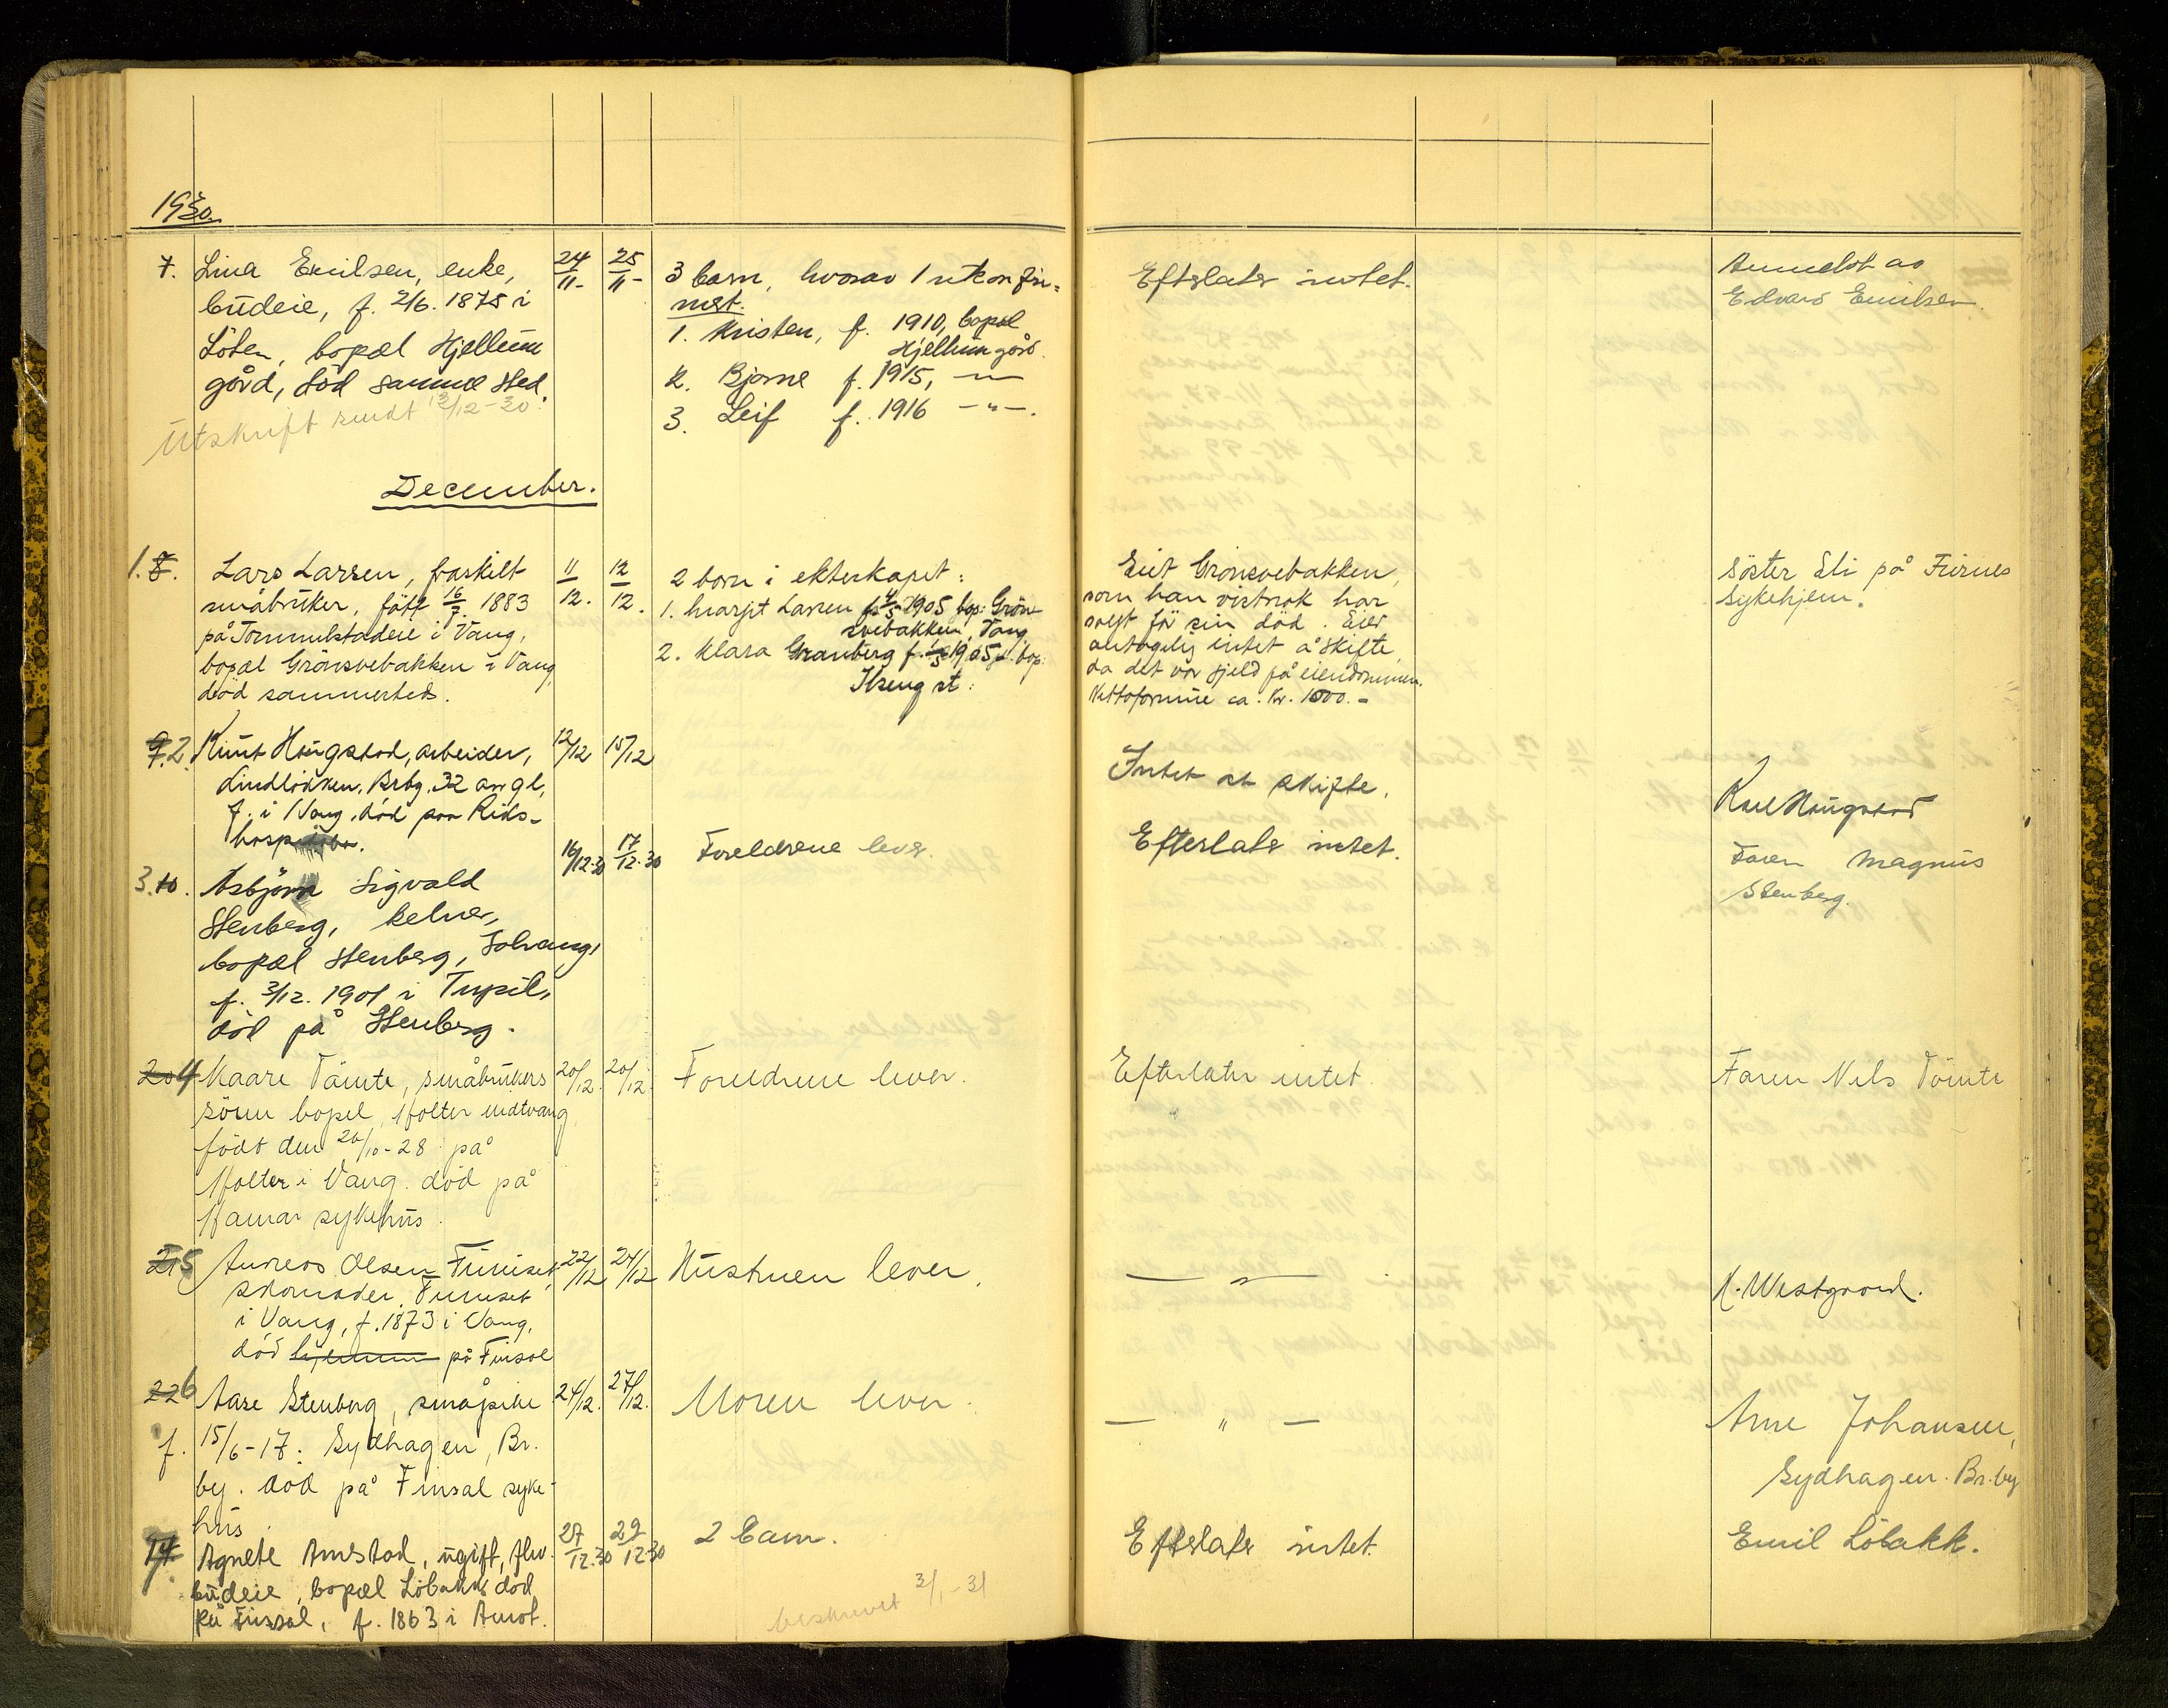 1930.
7. Lina Emilsen, enke,
budeie, f. 2/6. 1875 i
Löten, bopæl Hjellum
gård, död samme sted.
Utskrift sendt 13/12-30.
24/11- 25/11-
3 barn, hvorav 1 ukonfir-
mert.
1. Kristen, f. 1910, bopæl
Hjellum gård.
2. Bjarne f. 1915, —"—
3. Leif f. 1916 —"—.
Efterlater intet.
Anmeldt av
Edvard Emilsen
December.
1. 8. Lars Larsen, fraskilt
småbruker, födt 16/7. 1883
på Tommelstadeie i Vang,
bopæl Grönsvebakken i Vang
död sammesteds.
11/12. 12/12.
2 barn i ekteskapet:
1. Margit Larsen f. 4/5 1905 bop: Grön-
svebakken, Vang
2. Klara Granberg f. 1905 bop:
Ilseng st:
Eiet Grönsvebakken,
som han vistnok har
solgt för sin död. Eier
antagelig intet å skifte
da det var gjeld på eiendommen.
Nettoformue ca. Kr. 1000.-
Söster Eli på Furnes
sykehjem.
9. 2. Knut Hingstad, arbeider,
Lindlökken, Brbg. 32 aar gl,
f. i Vang, död paa Riks-
hosp.
12/12 15/12
Intet at skifte.
Karl Hingstad
3. 10. Asbjörn Sigvald
Stenberg, kelner,
bopæl Stenberg, Solvang,
f. 3/12. 1901 i Trysil,
död på Stenberg.
16/12.30 17/12.30
Foreldrene lever.
Efterlater intet.
Faren Magnus
Stenberg.
20 4 Kaare Tömte, småbrukers
sönn bopel, Holter midtvang
födt den 20/10-28 på
Holter i Vang. död på
Hamar sykehus.
20/12 20/12.
Foreldrene lever.
Efterlater intet.
Faren Nils Tömte
21 5 Andreas Olsen Finiset,
skomaker, Finiset
i Vang, f. 1873 i Vang,
död hjemme på Finsal
22/12 24/12
Hustruen lever.
— " —
H. Westgaard.
22 6 Aase Stenberg, småpike
f. 15/6-17. Sydhagen, Br.
by. död på Finsal syke-
hus.
24/12. 27/12.
Moren lever.
— " —
Arne Johansen,
Sydhagen. Br.by
7. Agnete Amstad, ugift, fhv.
budeie, bopæl Löbakk död
på Finsal, f. 1863 i Åmot.
27/12.30 29/12.30
2 barn.
beskrevet 3/1-31
Efterlater intet.
Emil Löbakk.